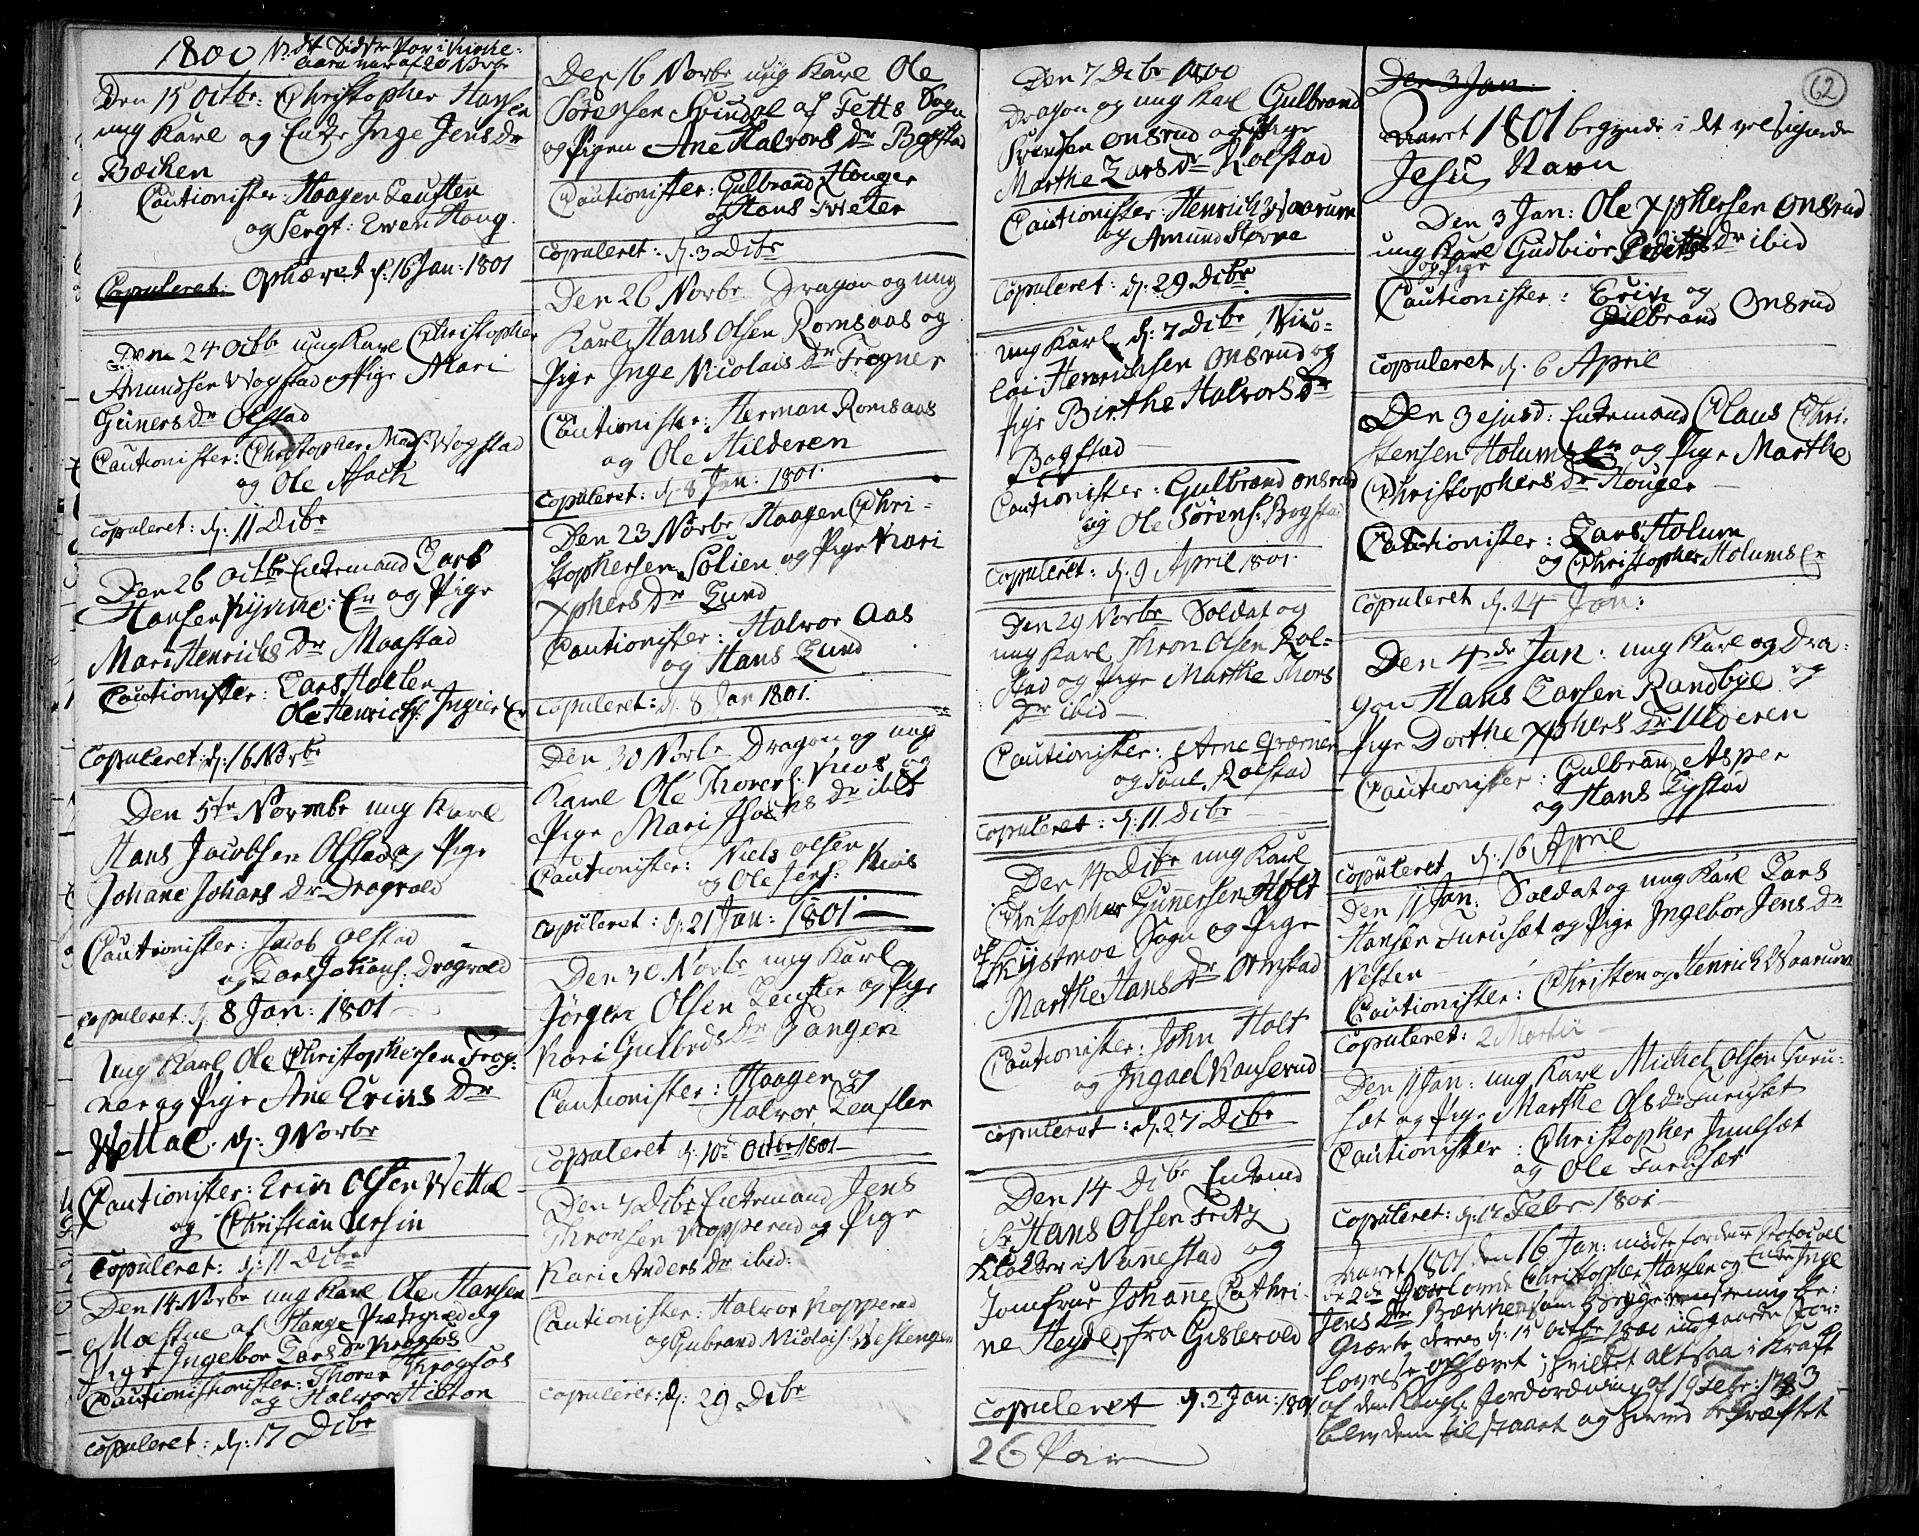 1800 NB det Sidste Par i Kirke-
Den 15 Octbr: Christopher Hansen
ung Karl og Enke Inge Jens Dr
Bæcken
Cautionister: Haagen Leufsten
og Sergt: Ewen Houg.
Copuleret: Ophævet d: 16 Jan: 1801
Den 24 Octbr ung Karl Christopher
Amundsen Wogstad og Pige Mari
Gunners Dr Olstad
Cautionister: Christopher Wogstad
og Ole Hack
Copuleret: d: 11 Dcbr
Den 26 Octbr Enkemand Lars
Hansen Kynne: En og Pige
Mari Henrichs Dr Maastad
Cautionister: Lars Hollen
Ole Henrichs: Ingier En
Copuleret: d: 16 Novbr
Den 5te Novembr ung Karl
Hans Jacobsen Olstad og Pige
Johane Johans Dr Dragvold
Cautionister: Jacob Olstad
og Lars Johans: Dragvold
Copuleret: d: 8 Jan: 1801
Ung Karl Ole Christophersen Frog-
ner og Pige Ane Erics Dr
Wettal d: 9 Novbr
Cautionister: Eric Olsen Wettal
og Christian Lersin
Copuleret: d: 11 Dcbr
Den 14 Novbr ung Karl Ole Hansen
Mæstue af Stange Præstegield og
Pige Ingebor Lars Dr Krogsos
Cautionistionister: Thorer Krogsos
og Halvor Hilton
Copuleret: d: 17 Dcbr
Den 16 Novbr ung Karl Ole
Sørensen Svindal af Fetts Sogn
og Pigen Ane Halvors Dr Bogstad
Cautionister: Gulbrand Houger
og Hans Sveter
Copuleret: d: 3 Dcbr
Den 26 Novbr Dragon og ung
Karl Hans Olsen Romsaas og
Pige Inge Nicolais Dr Frogner
Cautionister: Herman Romsaas
og Ole Hilderen
Copuleret: d: 8 Jan: 1801
Den 23 Novbr Haagen Chri-
stophersen Solien og Pige Kari
Xphers Dr Lund
Cautionister: Halvor Aas
og Hans Lund
Copuleret: d: 8 Jan 1801
Den 30 Novbr Dragon og ung
Karl Ole Thorers: Kios og
Pige Mari Dr ibid
Cautionister: Niels Olsen
og Ole Jens: Kios
Copuleret: d: 21 Jan: 1801
Den 30 Novbr ung Karl
Jørgen Olsen Leufsten og Pige
Kari Gulbrds Dr Tangen
Cautionister: Haagen og
Halvor Leufsten
Copuleret d: 10de Octbr 1801
Den 7 Dcbr Enkemand Jens
Thronsen Kopperud og Pige
Kari Anders Dr ibid:
Cautionister: Halvor Kopperud
og Gulbrand Nicolais: Westengen
Copuleret: d: 29 Dcbr
Den 7 Dcbr 1800
Dragon og ung Karl Gulbrand
Svendsen Onsrud og Pige
Marthe Lars Dr Rolstad
Cautionister: Henrich Waarum
og Amund Skovne
Copuleret: d: 29 Dcbr
ung Karl d: 7 Dcbr Nico-
lai Henrichsen Onsrud og
Pige Birthe Halvors Dr
Bogstad
Cautionister: Gulbrand Onsrud
og Ole Sørens: Bogstad
Copuleret: d: 9 April 1801
Den 29 Novbr Soldat og
ung Karl Thron Olsen Rol-
stad og Pige Marthe Thors
Dr ibid
Cautionister: Arne Qværner
og Poul Rolstad
Copuleret: d: 11 Dcbr
Den 14 Dcbr ung Karl
Christopher Gunnersen Holt
af Kystmoe Sogn og Pige
Marthe Hans Dr Ormstad
Cautionister: John Holt
og Ingael Kauserud
Copuleret: d: 27 Dcbr
Den 14 Dcbr Enkemd
Sr Hans Olsen Fritz
Klokker i Nanestad og
Jomfrue Johanne Cathri-
ne Heyde fra Gislevold
Copuleret d: 2 Jan: 1801
26 Par
62
Den 3 Jan
Aaret 1801 begynde i det velsignede
Jesu Navn
Den 3 Jan: Ole Xphersen Onsrud
ung Karl Gudbiør Peders Dr ibid
og Pige
Cautionister: Eric og
Gulbrand Onsrud
Copuleret d. 6 April
Den 3 ejusd: Enkemand Claus Chri-
stensen Holums En og Pige Marthe
Christophers Dr Houger
Cautionister: Lars Holum
og Christopher Holums En
Copuleret d. 24 Jan:
Den 4de Jan: ung Karl og Dra-
gon Hans Larsen Randbye og
Pige Dorthe Xphers Dr Ulderen
Cautionister: Gulbrand Asper
og Hans Lystad
Copuleret d: 16 April
Den 11 Jan: Soldat og ung Karl Lars
Hansen Furusæt og Pige Ingebor Jens Dr
Nessen
Cautionister: Christen og Henrich Waarum
Copuleret: 2 Martii
Den 11 Jan: ung Karl Michel Olsen Furu-
sæt og Pige Marthe Ols Dr Furusæt
Cautionister: Christopher Juulsæt
og Ole Furusæt
Copuleret: d. 12 Febr 1801
Aaret 1801 den 16 Jan: mødte for denne Protocol
de 2de Forlovede Christopher Hansen og Enke Inge
Jens Dr Bækken som begge vare
giærte deres d: 15 Octbr 1800 indgaaede For-
lovelse ophævet, hvilket altsaa i Kraft
af den Kongl: Forordning af 19 Febr: 1783
blev dem tilstaaet og herved bekræftet